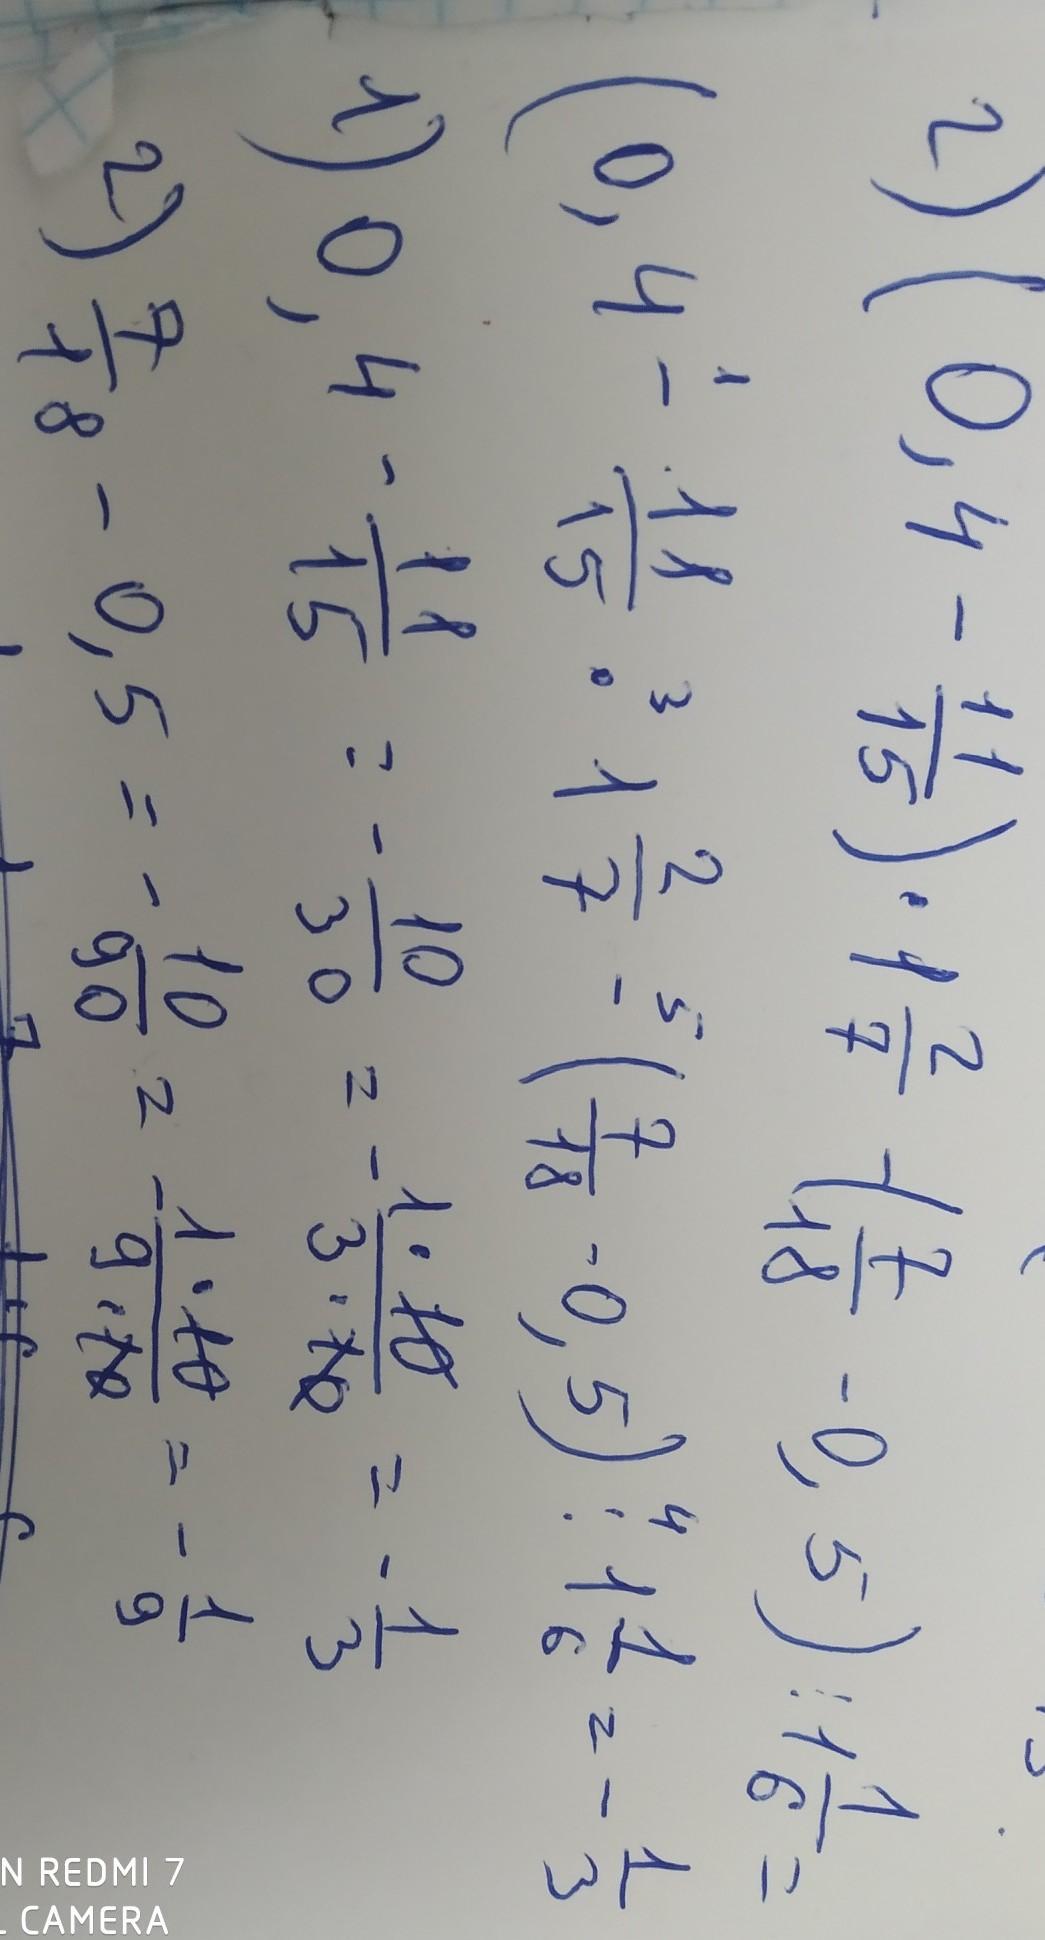 2) (0,4 - 11/15) · 1 2/7 - (7/18 - 0,5) : 1 1/6 =
(0,4 -¹ 11/15 ·³ 1 2/7 -⁵ (7/18 - 0,5) :⁴ 1 1/6 = - 1/3
1) 0,4 - 11/15 = - 10/30 = - 1·10/3·10 = - 1/3
2) 7/18 - 0,5 = - 10/90 = - 1·10/9·10 = - 1/9
N REDMI 7
CAMERA